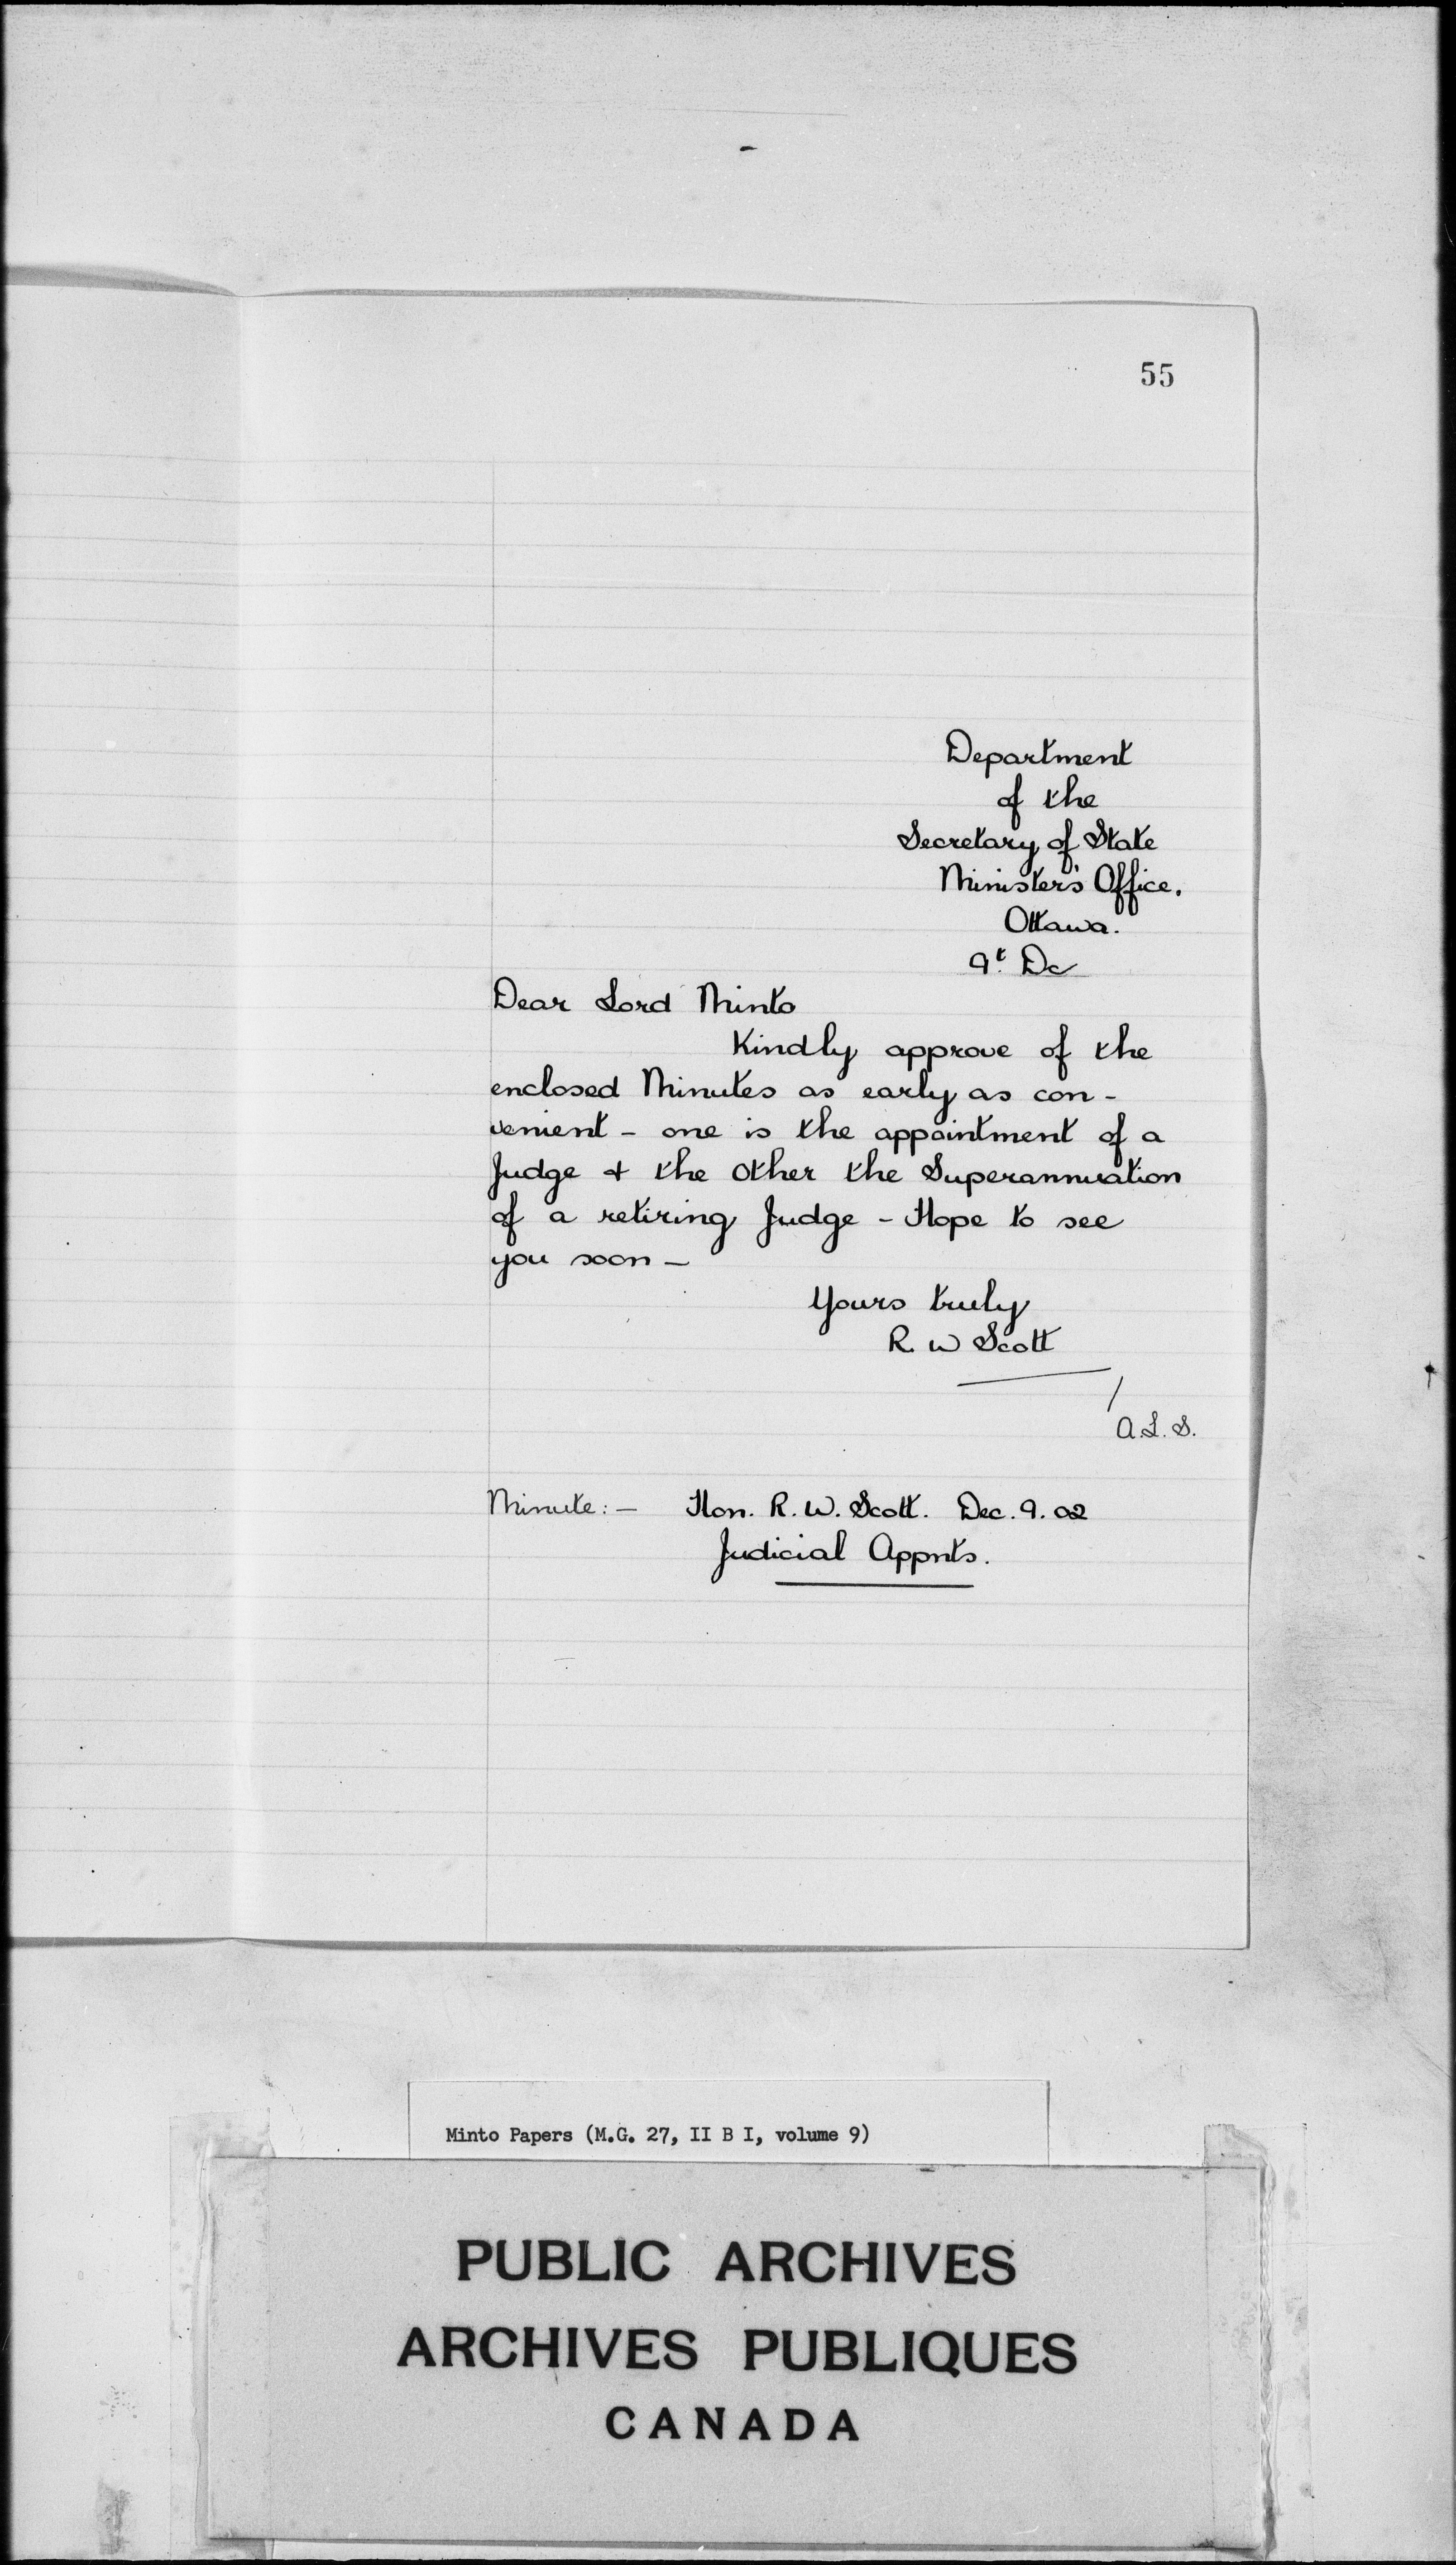 55
Department
of the
Secretary of State
Minister's Office.
Ottawa.
9t. Dc
Dear Lord Minto
Kindly approve of the
enclosed Minutes as early as con-
venient - one is the appointment of a
Judge & the other the Superannuation
of a retiring Judge - Hope to see
you soon -
Yours truly
R. W Scott
A.L.S.
Minute: - Hon. R. W. Scott. Dec. 9. 02
Judicial Appnts.
Minto Papers (M.G. 27, II B I, volume 9)
PUBLIC ARCHIVES
ARCHIVES PUBLIQUES
CANADA